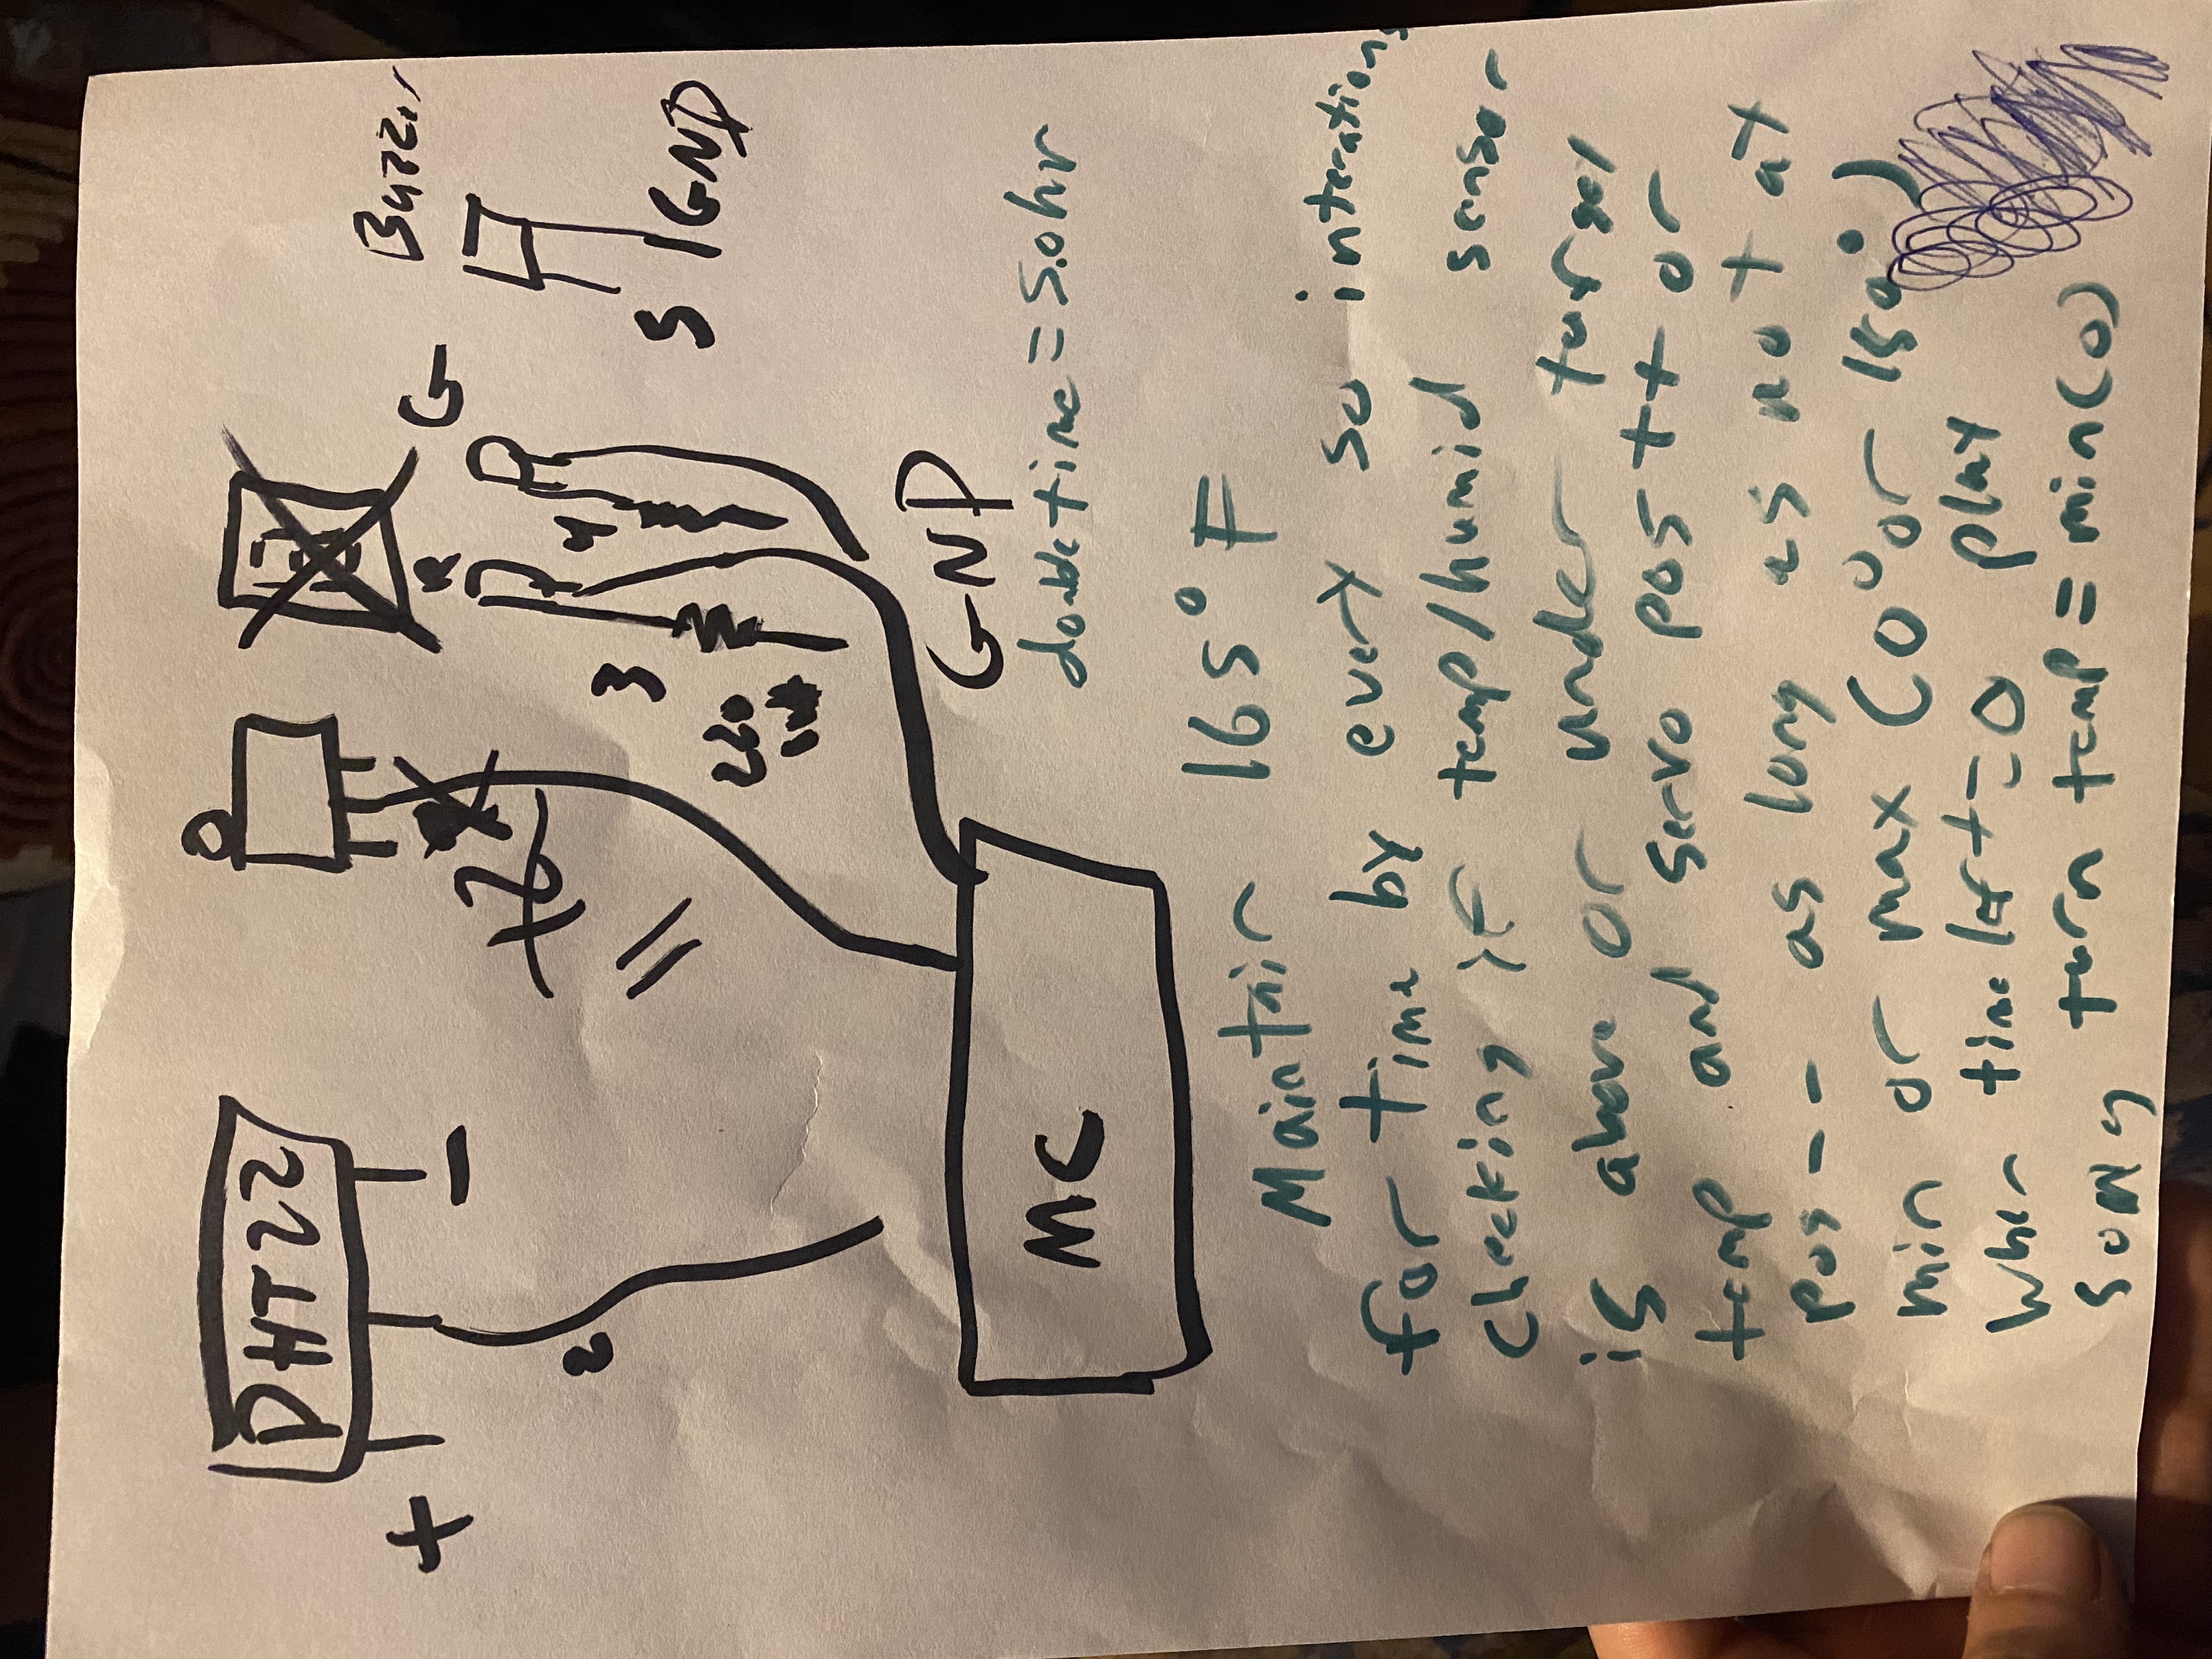 DHT22
+
-
R
G
Buzzer
2
11
3
4
220
5
GND
GND
MC
double time = 5.0hr
Maintain 165° F
for time by every so interations
checking if temp/humid sensor
is above or under target
temp and servo pos++ or
pos-- as long as not at
min or max (0° or 180°)
When time left = 0 play
song turn temp = min(0)